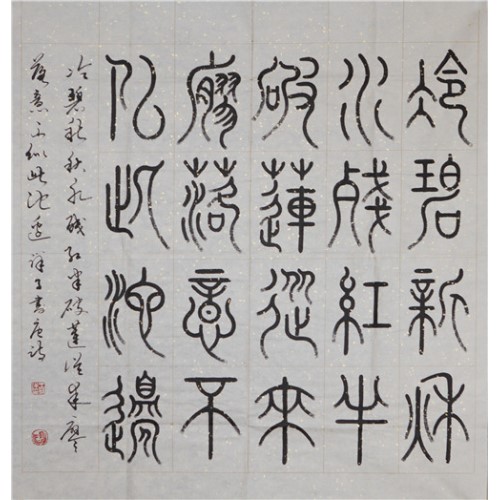 冷碧新秋
水殘紅半
破蓮從來
廫落意不
似此池邊
冷碧新秋水殘紅半破蓮從來廫
落意不似此池邊 書唐詩